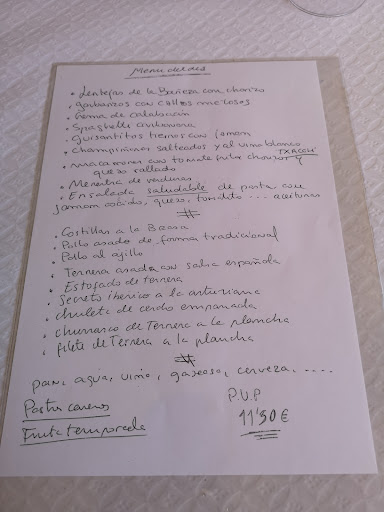 Menu del dia
• Lentejas de la Bañeza con chorizo
• garbanzos con callos melosos
• Crema de calabacin
• Spaghetti carbonara
• guisantitos tiernos con jamon
• Champiñones salteados y al vino blanco
TXACOLI
• macarrones con tomate frito chorizo y
queso rallado
• Menestra de verduras
• Ensalada saludable de pasta con
jamon cocido, queso, tomate ... aceitunas
#
• Costillas a la Brasa
• Pollo asado de forma tradicional
• Pollo al ajillo
• Ternera asada con salsa española
• Estofado de ternera
• Secreto iberico a la asturiana
• chuleta de cerdo empanada
• churrasco de Ternera a la plancha
• filete de Ternera a la plancha
#
pan, agua, vino, gaseosa, cerveza, ....
Postres caseros
Fruta temporada
P.V.P
11'50 €